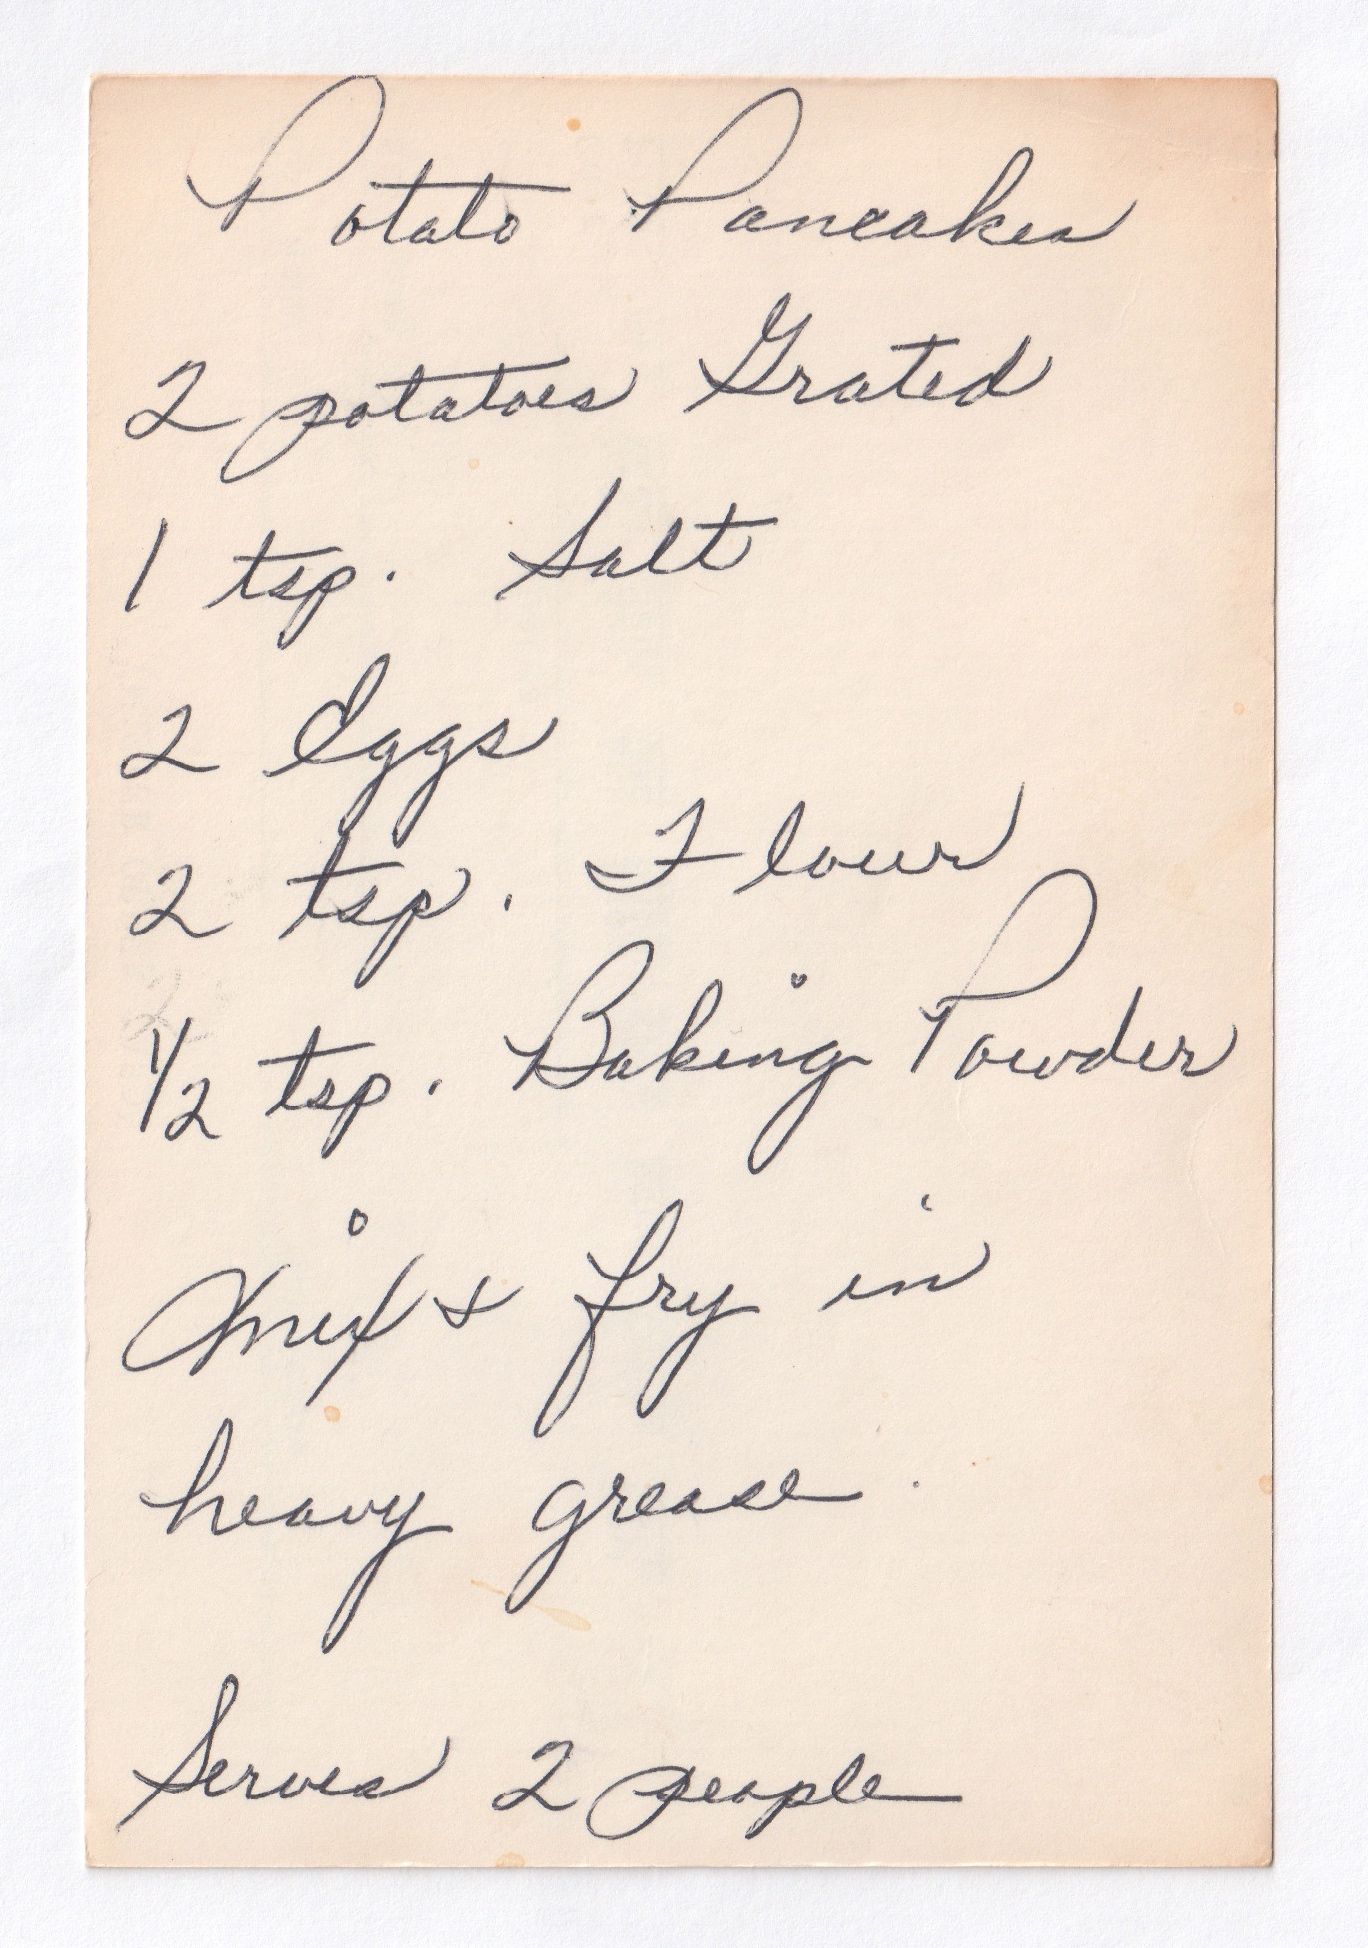 Potato Pancakes
2 potatoes Grated
1 tsp. Salt
2 Eggs
2 tsp. Flour
1/2 tsp. Baking Powder
Mix & fry in
heavy grease.
Serves 2 people